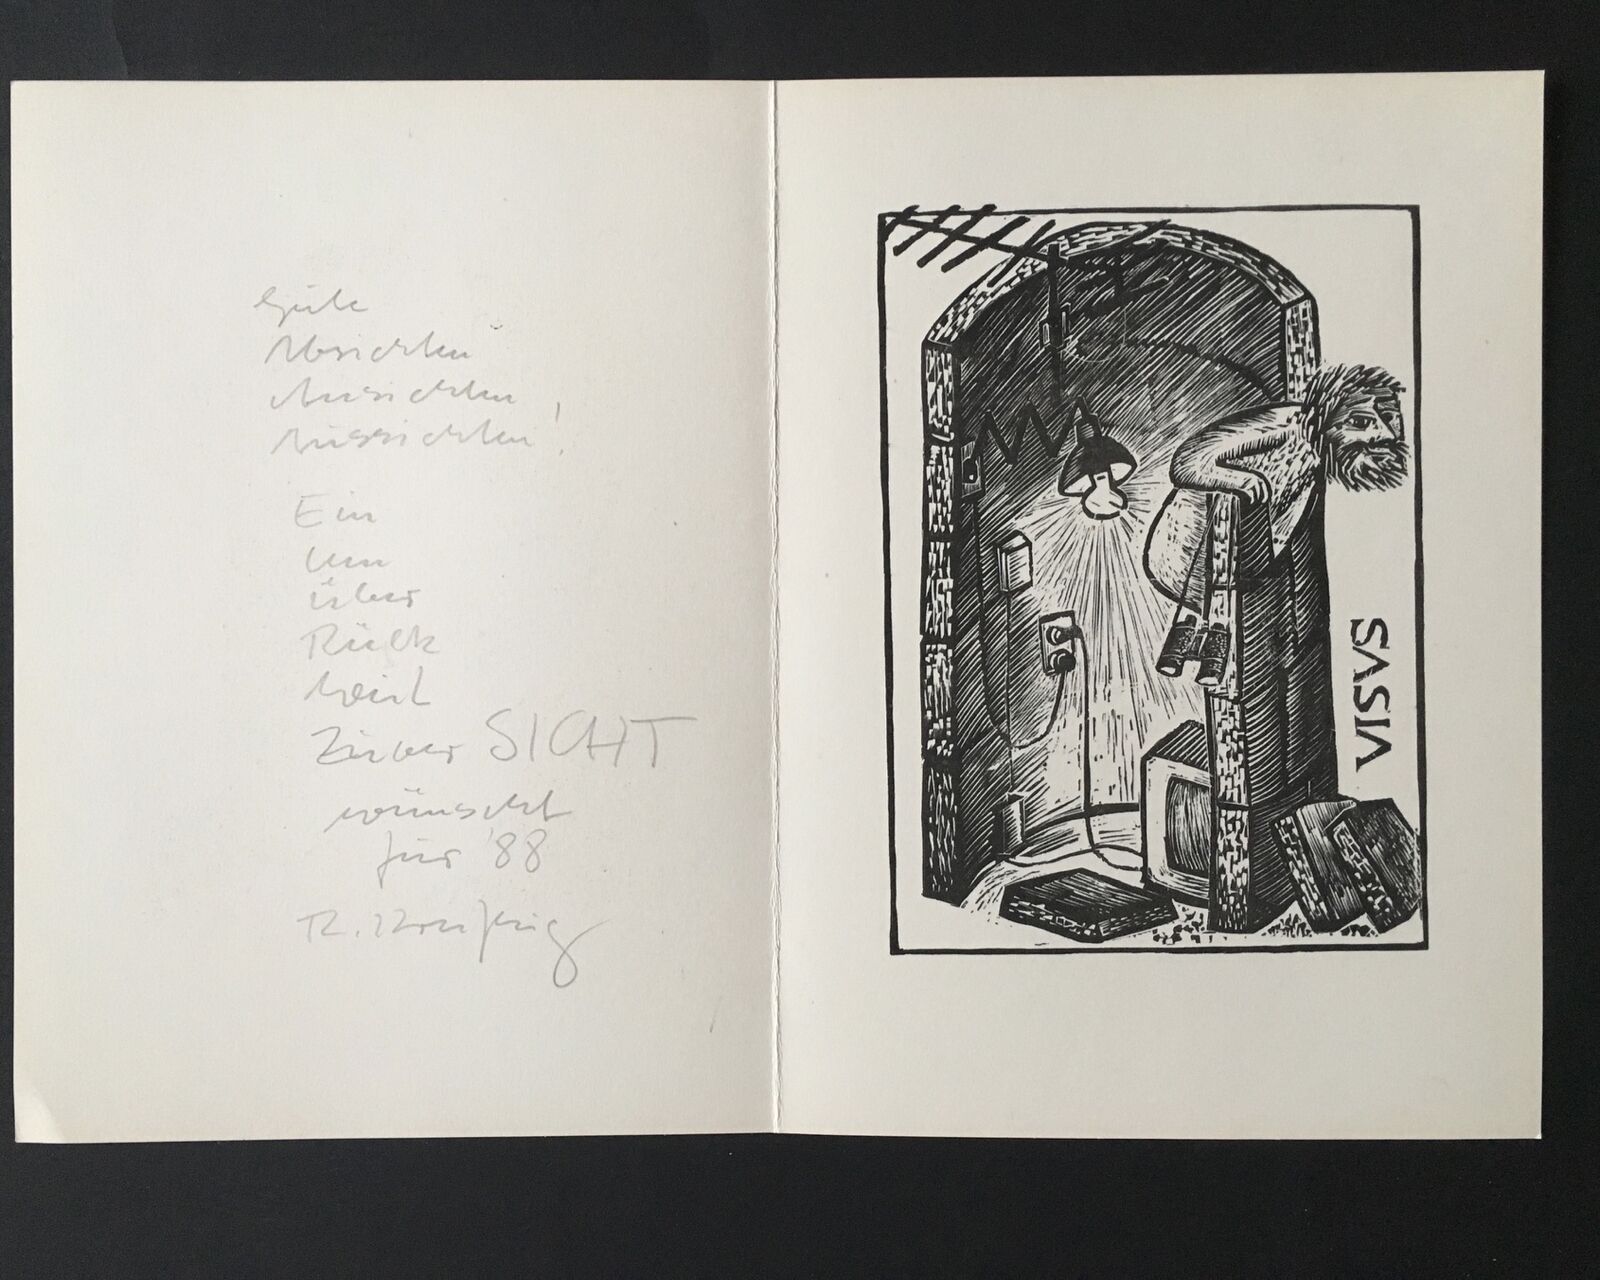 Gute
Absichten
Ansichten,
Aussichten!
Ein
Um
über
Rück
Weit
Zuver SICHT
wünscht
für '88
R.
VISUS